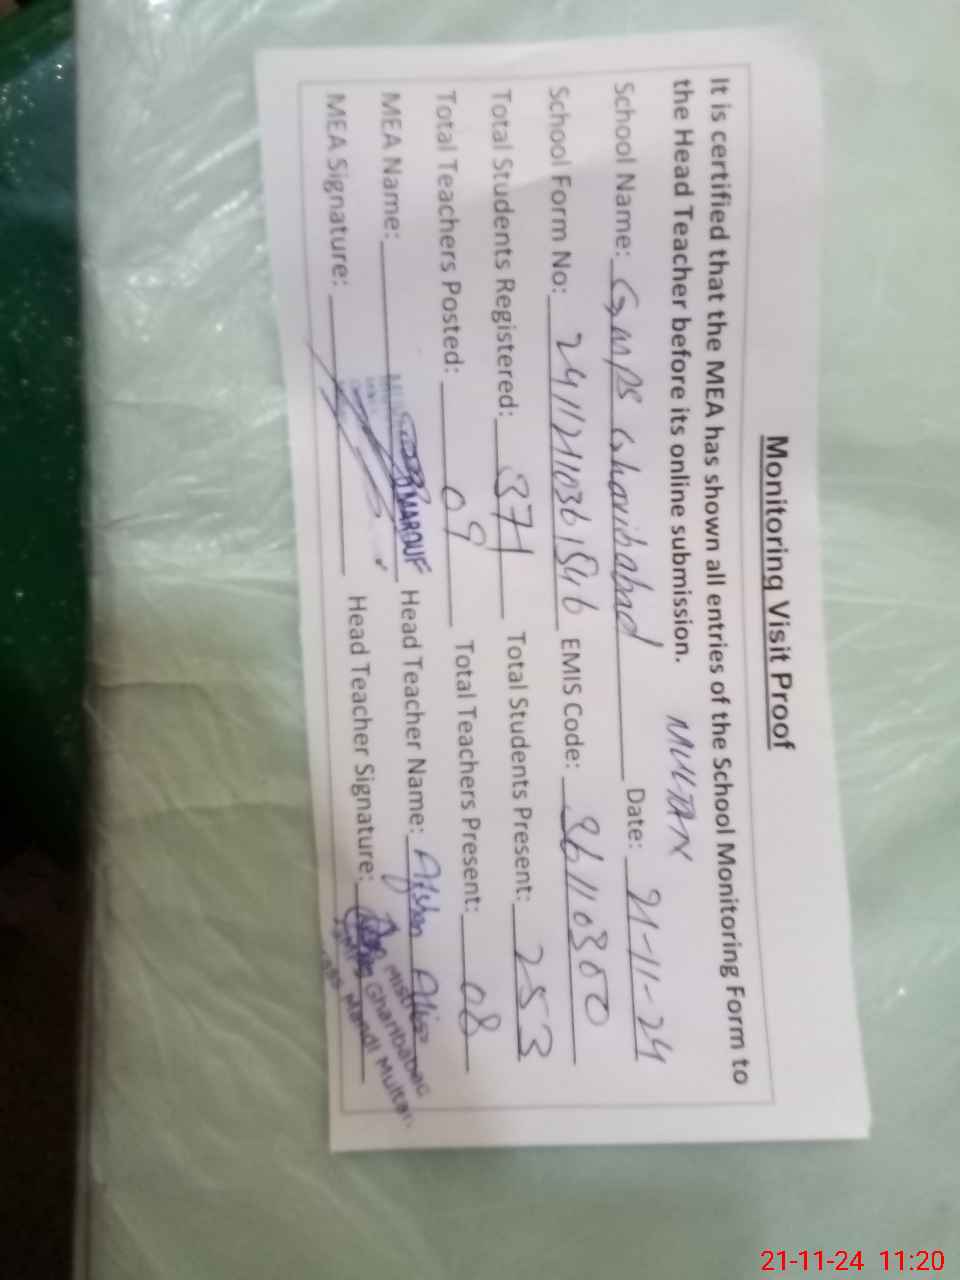 Monitoring Visit Proof
It is certified that the MEA has shown all entries of the School Monitoring Form to
the Head Teacher before its online submission. MULTAN
School Name: GMPS Gharibabad Date: 21-11-24
School Form No: 24112110361546 EMIS Code: 36110300
Total Students Registered: 371 Total Students Present: 253
Total Teachers Posted: 09 Total Teachers Present: 08
MEA Name: MAROUF Head Teacher Name: Afshan
MEA Signature: Head Teacher Signature:
Gharibabad
Mandi Multan
21-11-24 11:20